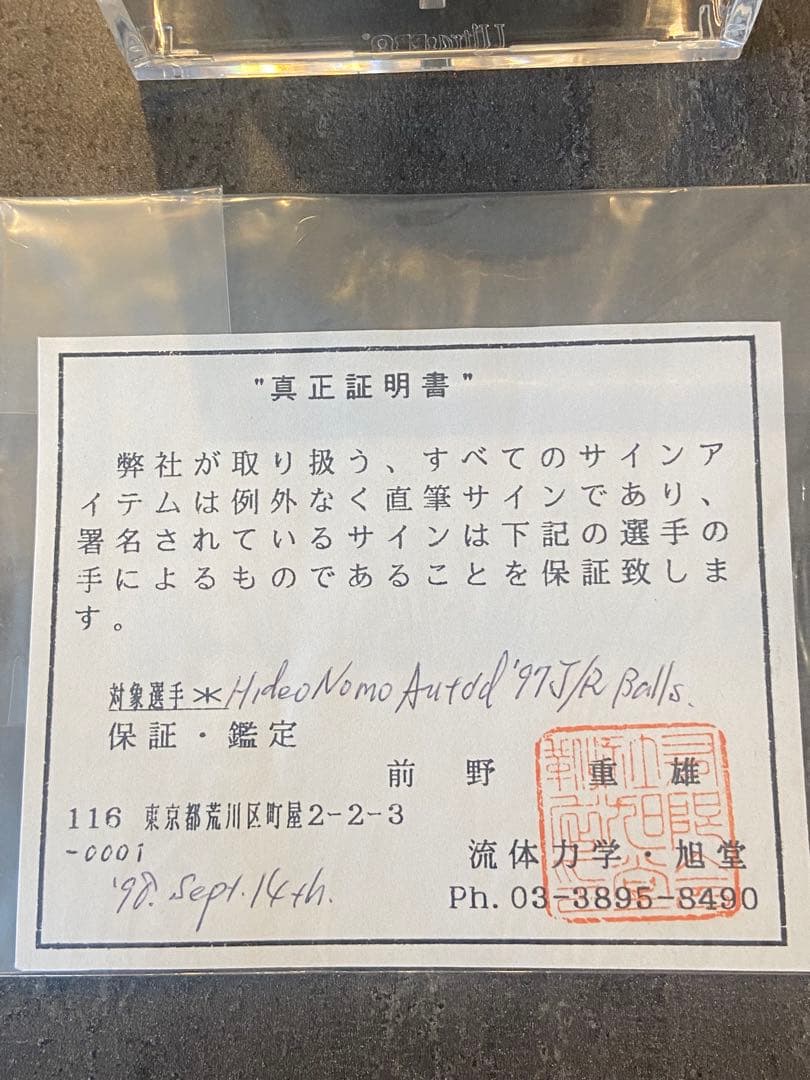 UltraPRO
"真正証明書"
弊社が取り扱う、すべてのサインア
イテムは例外なく直筆サインであり、
署名されているサインは下記の選手の
手によるものであることを保証致しま
す。
対象選手＊Hideo Nomo Autdd '97 J/R Balls.
保証・鑑定
前野 重雄
116 東京都荒川区町屋2-2-3
-0001
流体力学・旭堂
'98. Sept. 14th.
Ph. 03-3895-8490